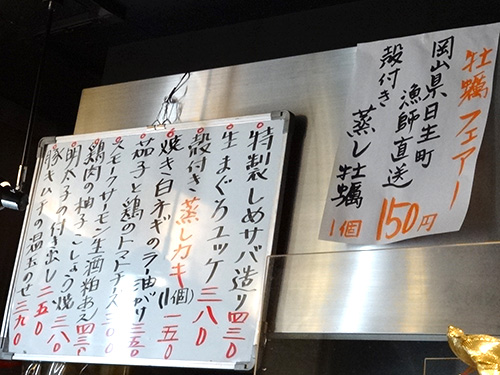 牡蠣フェアー
岡山県日生町
漁師直送
殻付き
蒸し牡蠣
1個150円
特製しめサバ造り 四三〇
生まぐろユッケ 三八〇
殻付き蒸しカキ(1個)一五〇
焼き白ネギのラー油がけ 三五〇
茄子と鶏のトマトチーズ
スモークサーモン生酒粕あえ 四三〇
鶏肉の柚子こしょう焼 三八〇
明太子の付き出し 二五〇
豚キムチの温玉のせ 三九〇